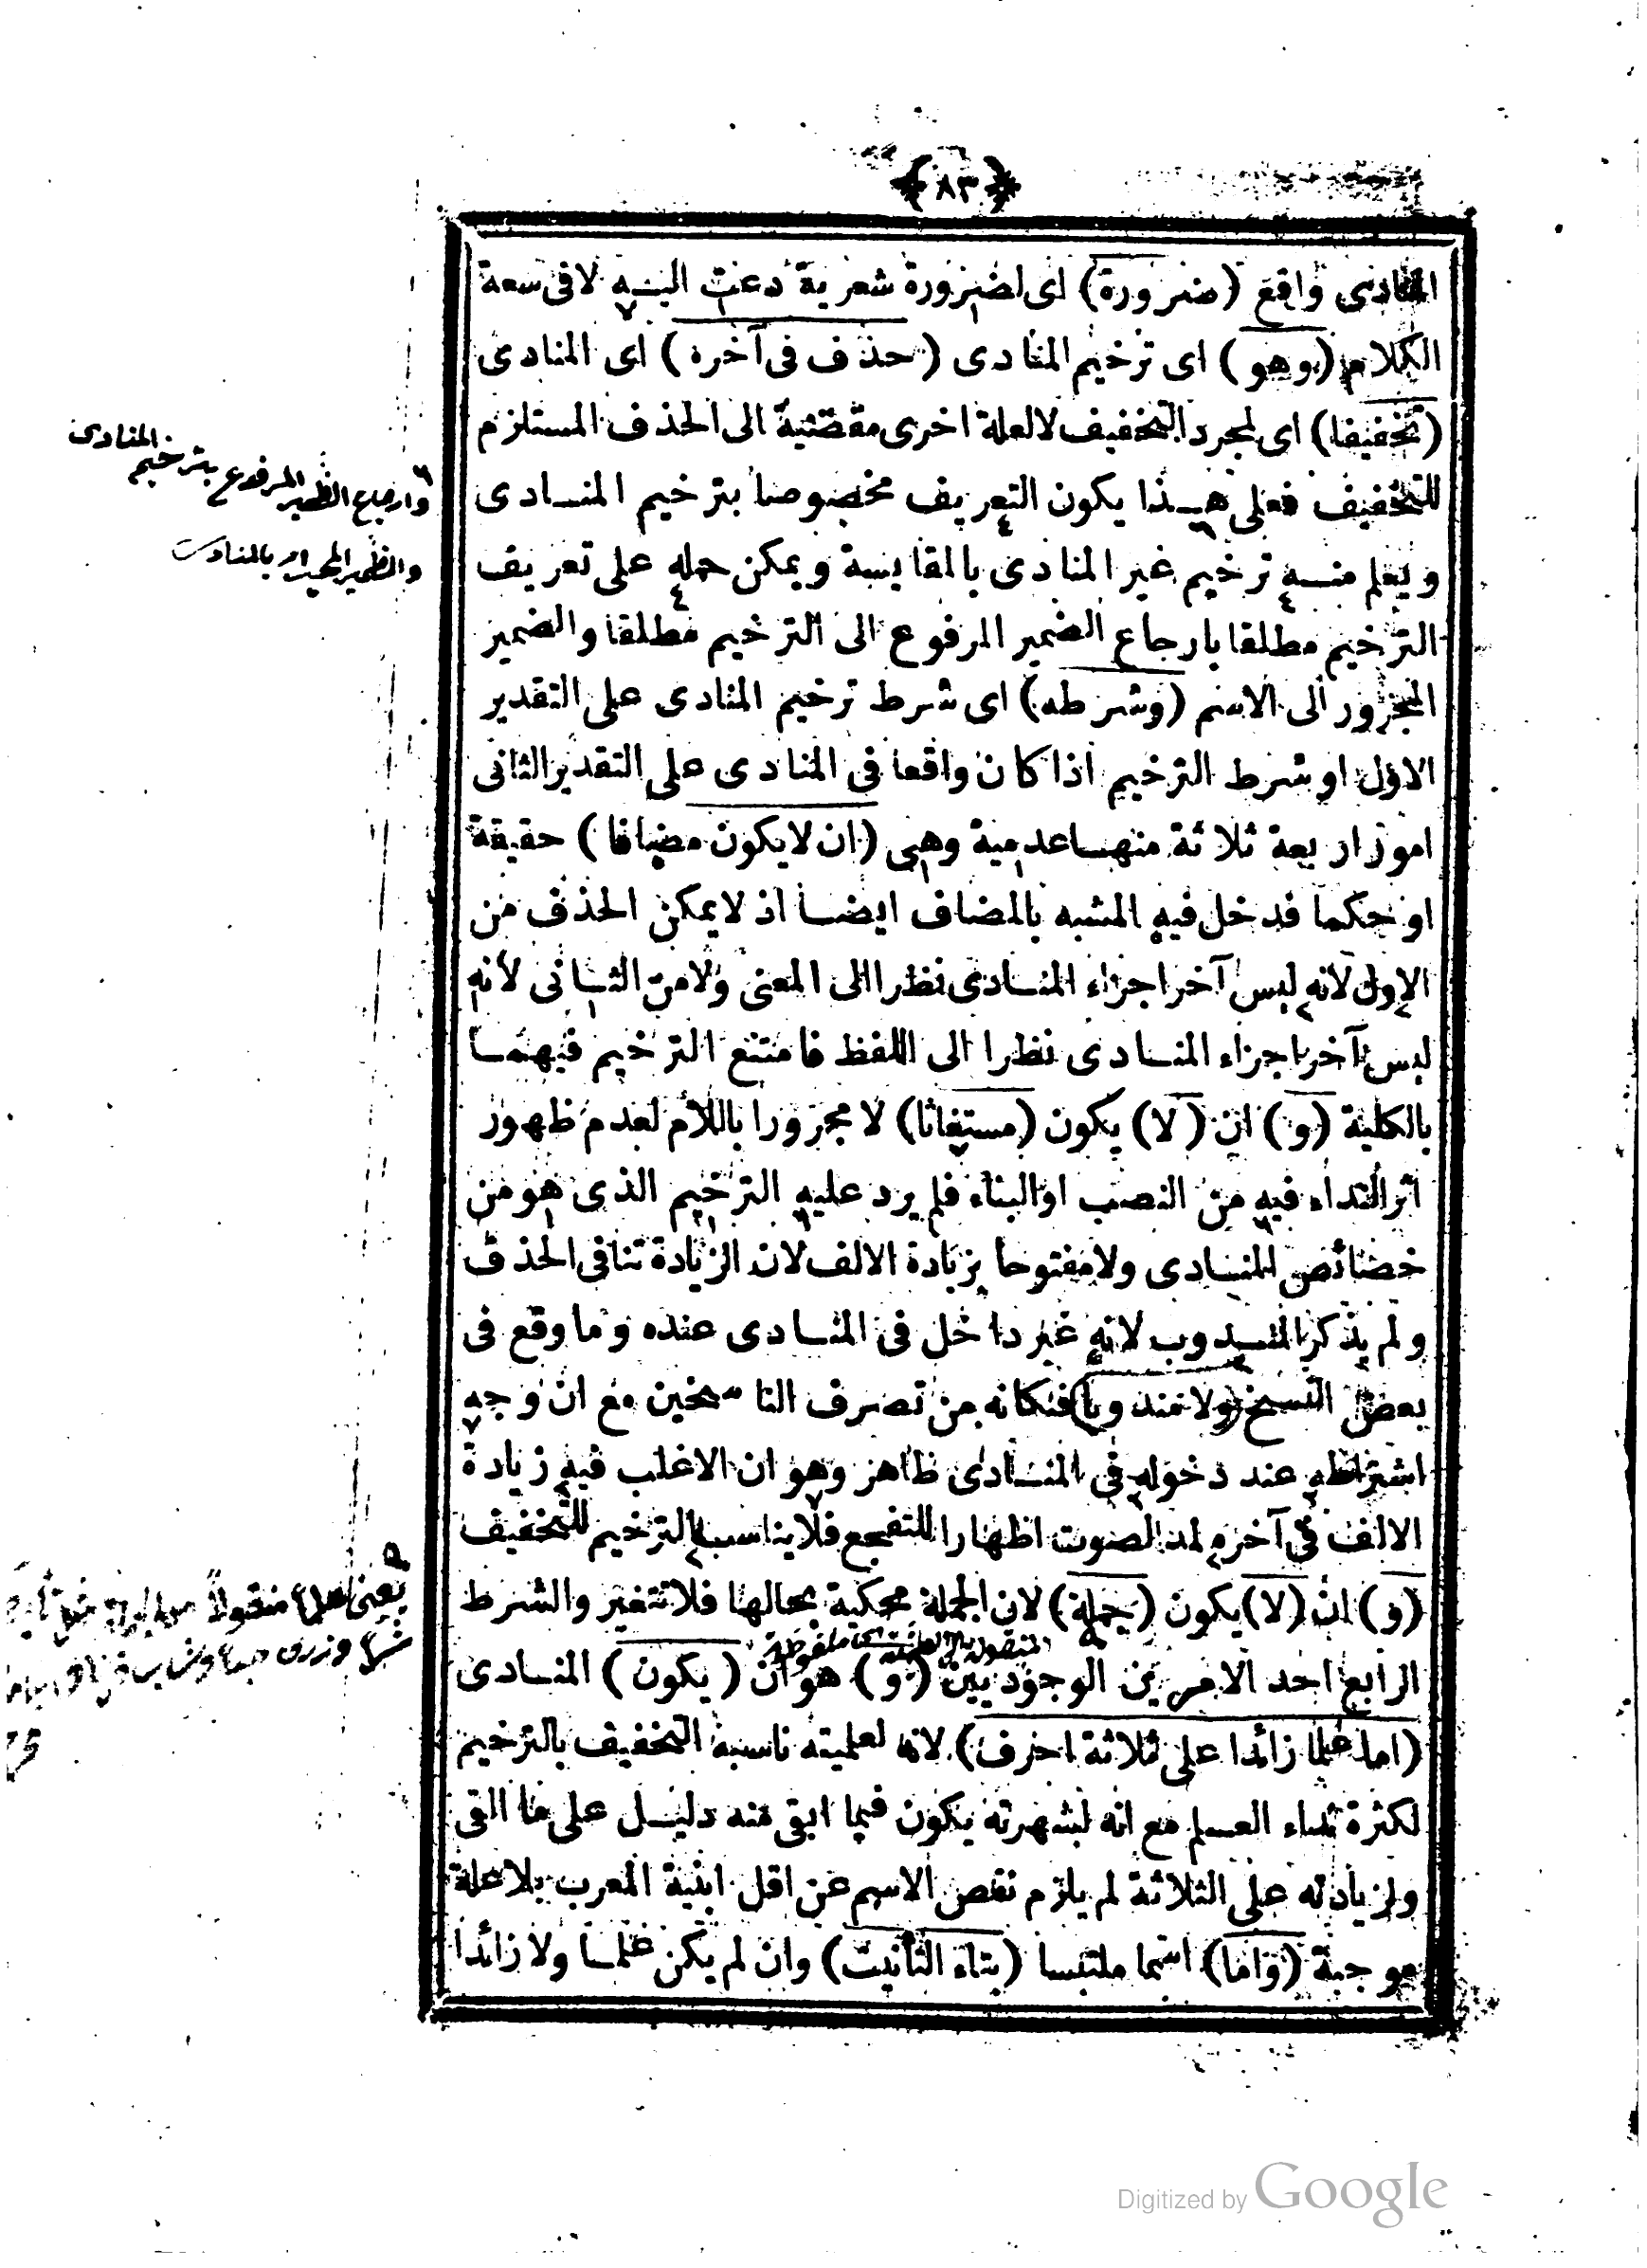 ﴿٨٣﴾
المنادى واقع (ضرورة) اى لضرورة شعرية دعت اليه لا فى سعة
الكلام (وهو) اى ترخيم المنادى (حذف فى آخره) اى المنادى
(تخفيفا) اى لمجرد التخفيف لا لعلة اخرى مقتضية الى الحذف المستلزم
للتخفيف فعلى هذا يكون التعريف مخصوصا بترخيم المنادى
ويعلم منه ترخيم غير المنادى بالمقايسة ويمكن حمله على تعريف
الترخيم مطلقا بارجاع الضمير المرفوع الى الترخيم مطلقا والضمير
المجرور الى الاسم (وشرطه) اى شرط ترخيم المنادى على التقدير
الاول او شرط الترخيم اذا كان واقعا فى المنادى على التقدير الثانى
امور اربعة ثلاثة منها عدمية وهى (ان لا يكون مضافا) حقيقة
او حكما فدخل فيه المشبه بالمضاف ايضا اذ لا يمكن الحذف من
الاول لانه ليس آخر اجزاء المنادى نظرا الى المعنى ولا من الثانى لأنه
ليس آخر اجزاء المنادى نظرا الى اللفظ فامتنع الترخيم فيهما
بالكلية (و) ان (لا) يكون (مستغاثا) لا مجرورا باللام لعدم ظهور
اثر النداء فيه من النصب او البناء فلم يرد عليه الترخيم الذى هو من
خصائص المنادى ولا مفتوحا بزيادة الالف لان الزيادة تنافى الحذف
ولم يذكر المندوب لانه غير داخل فى المنادى عنده وما وقع فى
بعض النسخ (ولا مندوبا) فكانه من تصرف الناسخين مع ان وجه
اشتراطه عند دخوله فى المنادى ظاهر وهو ان الاغلب فيه زيادة
الالف فى آخره لمد الصوت اظهارا للتفجع فلا يناسبه الترخيم للتخفيف
(و) ان (لا) يكون (جملة) لان الجملة محكية بحالها فلا تتغير والشرط
الرابع احد الامرين الوجوديين (و) هو ان (يكون) المنادى
(اما علما زائدا على ثلاثة احرف) لانه لعلميته ناسبه التخفيف بالترخيم
لكثرة نداء العلم مع انه لشهرته يكون فيما ابقى منه دليل على ما القى
ولزيادته على الثلاثة لم يلزم نقص الاسم عن اقل ابنية المعرب بلا علة
موجبة (واما) اسما ملتبسا (بتاء التأنيث) وان لم يكن علما ولا زائدا
وارجاع الضمير المرفوع بترخيم المنادى
والضمير المجرور بالمنادى
Digitized by Google